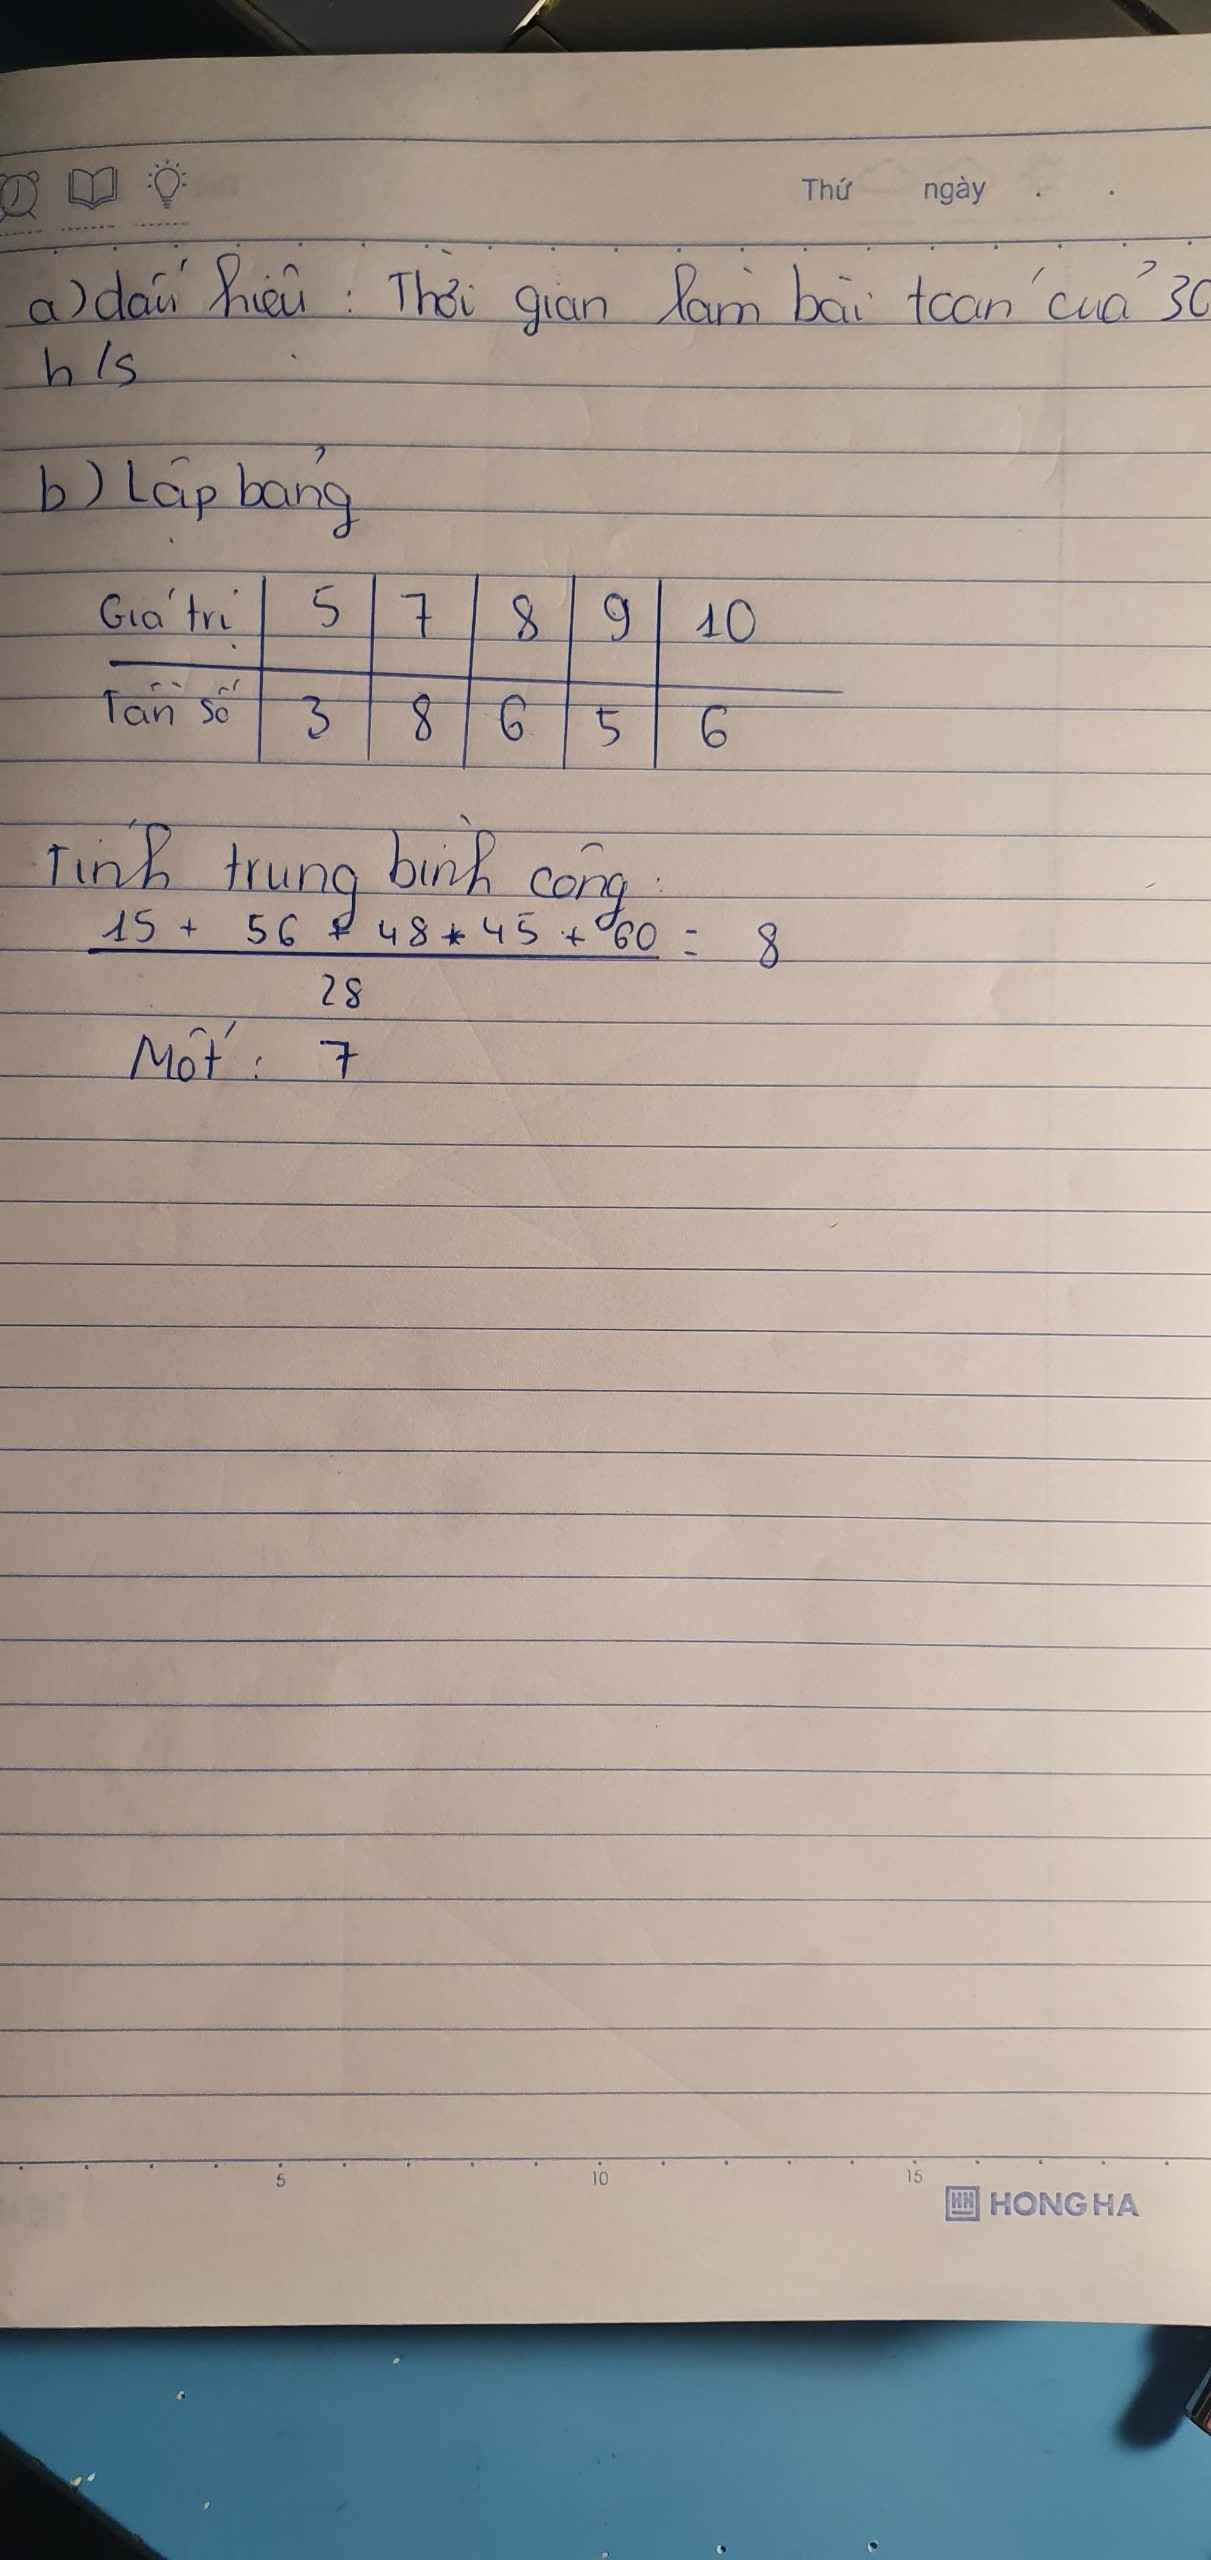 Thứ ngày . .
a) dấu hiệu : Thời gian làm bài toán của 30
h/s
b) Lập bảng
Giá trị 5 7 8 9 10
Tần số 3 8 6 5 6
Tính trung bình cộng :
15 + 56 + 48 + 45 + 60 = 8
28
Mốt : 7
5 10 15
HH HONG HA